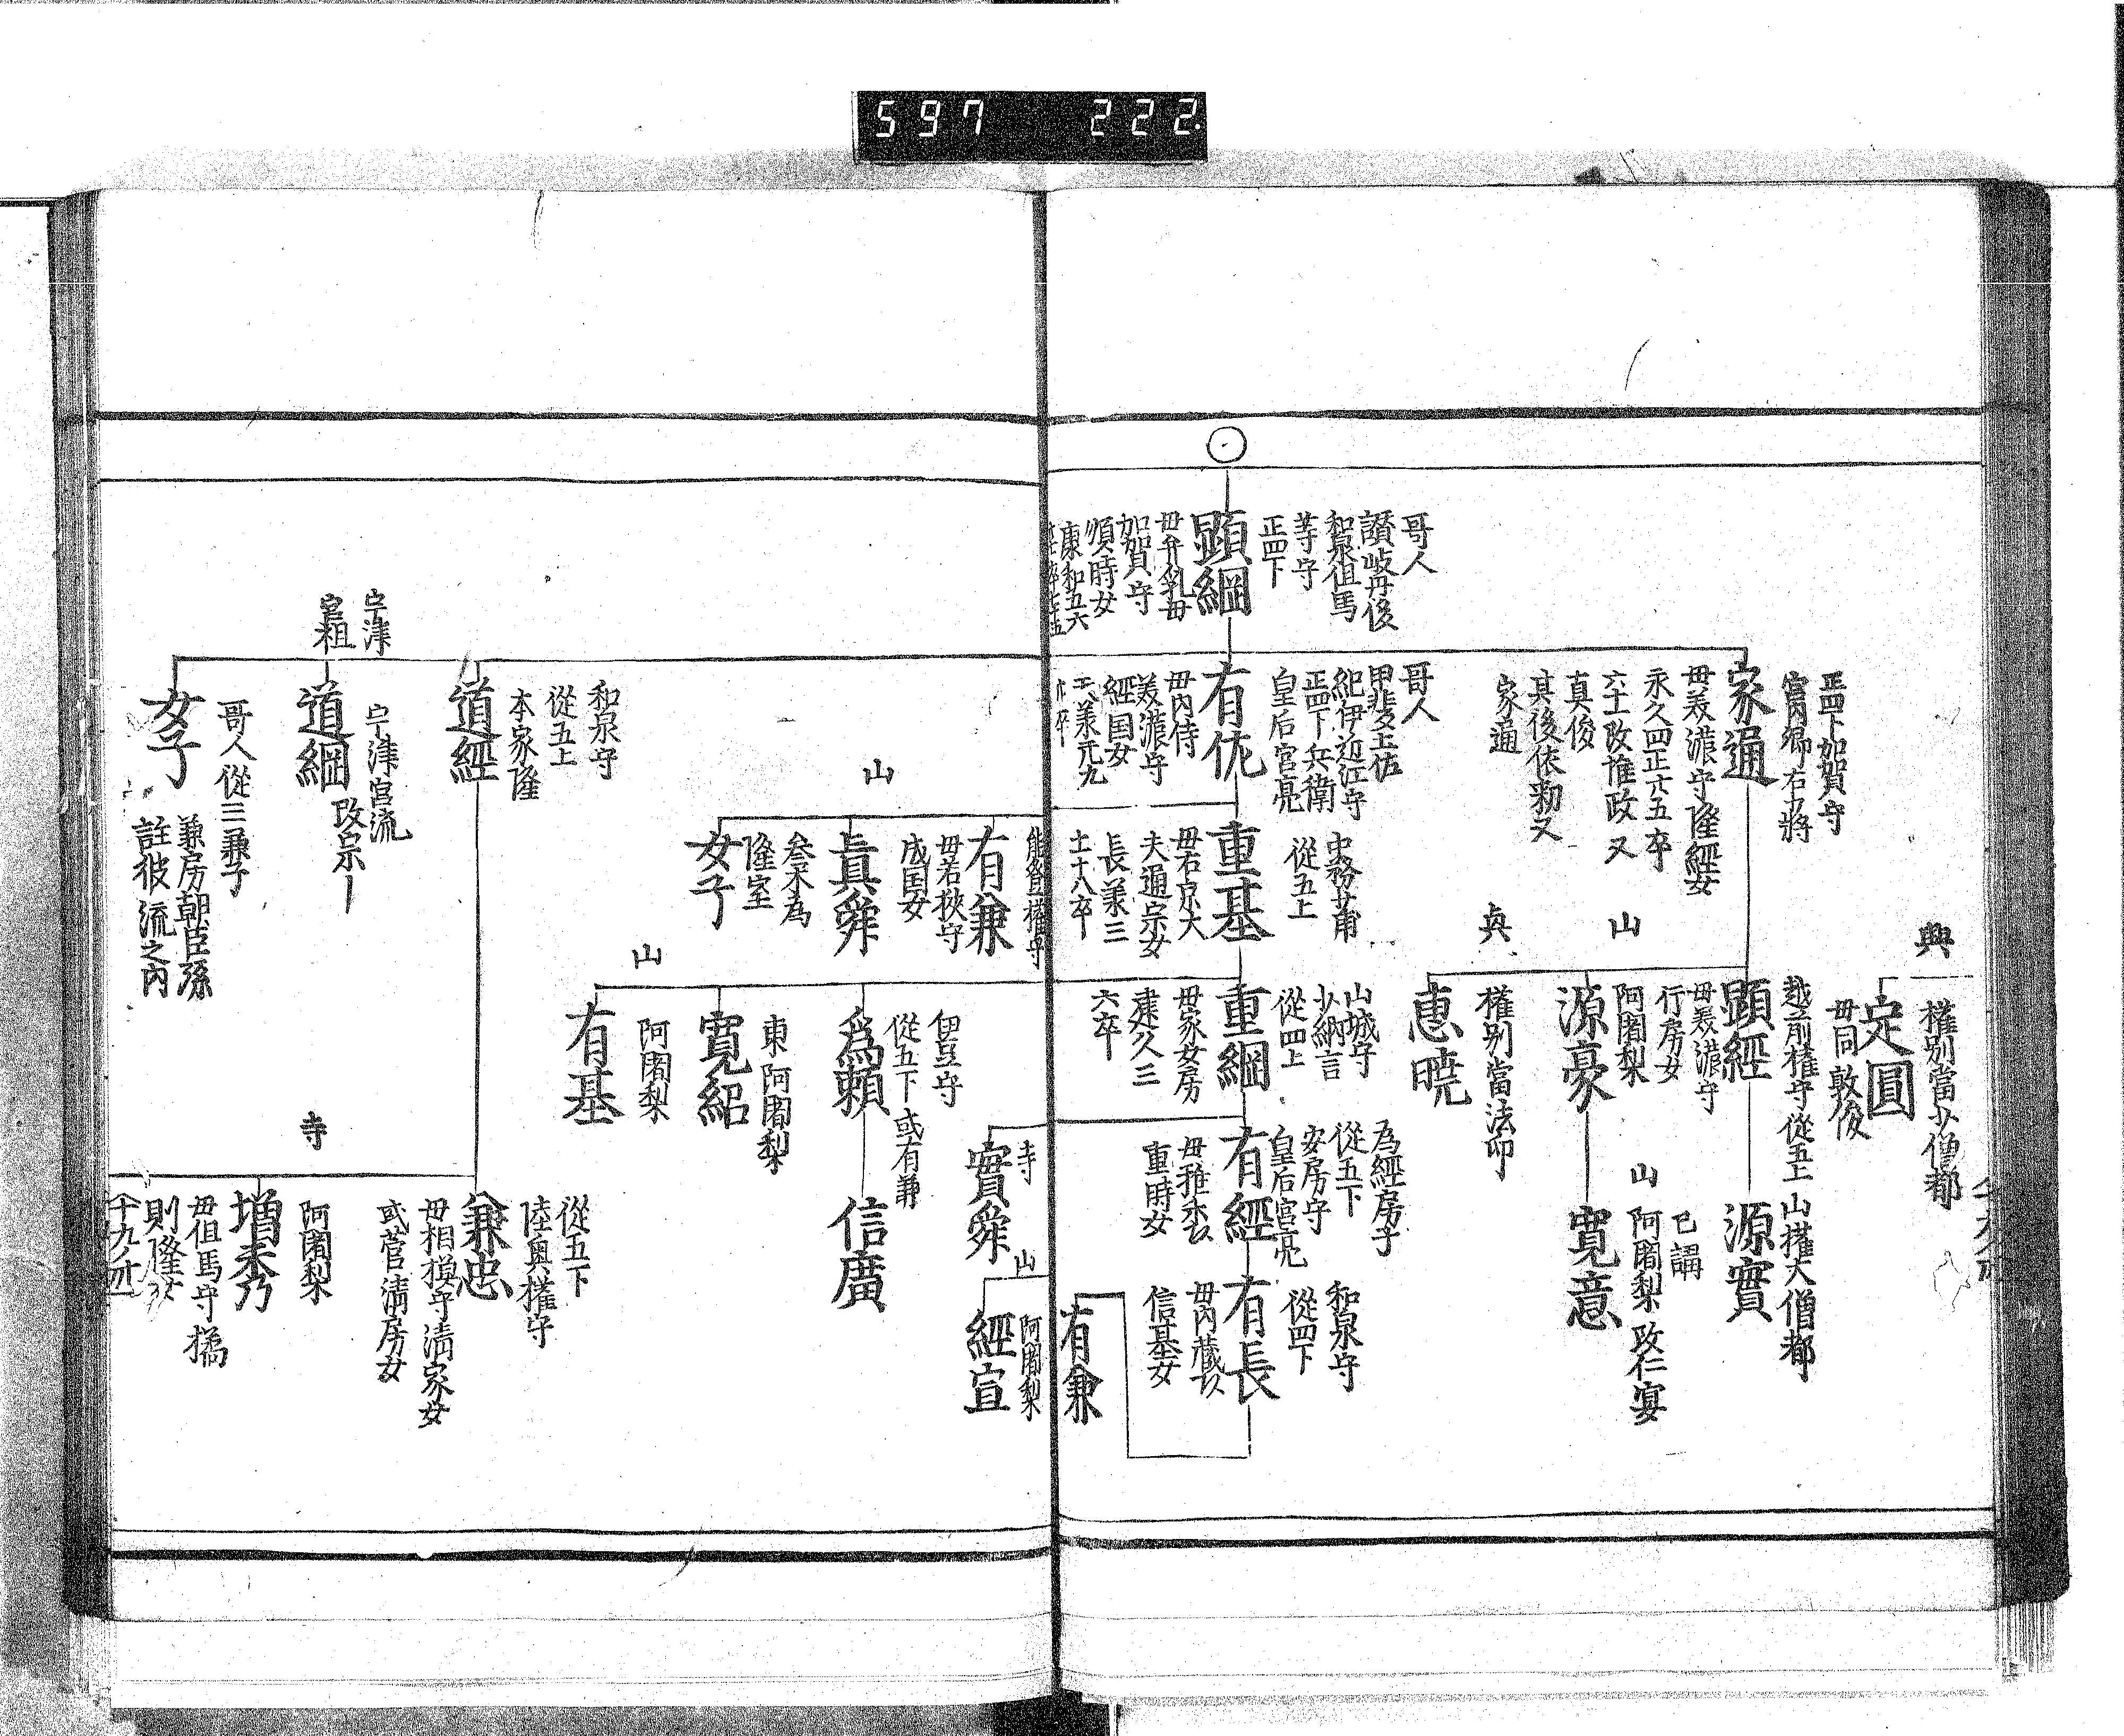 597 222.
興
權別當少僧都
定圓
母同敦俊
正四下加賀守
宮內卿右少將
家通
母美濃守隆經女
永久四正六五卒
六十一改惟政又
真俊
其後依勅又
家通
越前權守從五上
顕經
母美濃守
行房女
山權大僧都
源實
山
阿闍梨
源豪
山
已講
阿闍梨改仁宴
寛意
權別當法印
恵暁
哥人
讃岐丹後
和泉但馬
等守
正四下
顕綱
母弁乳母
加賀守
順時女
康和五六
哥人
甲斐土佐
紀伊近江守
正四下兵衛
皇后宮亮
有佐
母內侍
美濃守
經国女
天承元九
中務少甫
從五上
重基
母右京大
夫通宗女
長承三
十二十八卒
山城守
少納言
從四上
重綱
母家女房
建久三
六卒
為經房子
從五下
安房守
皇后宮亮
有經
母雅楽
重時女
和泉守
從四下
有長
母內藏
信基女
有兼
能登權守
有兼
母若狹守
成国女
山
眞舜
女子
隆室
寺
實舜
山
阿闍梨
經宣
伊豆守
從五下或有兼
爲頼
信廣
東阿闍梨
寛紹
山
阿闍梨
有基
和泉守
從五上
本家隆
道經
宇津
宮祖
宇津宮流
道綱
改宗
哥人從三兼子
女子
兼房朝臣孫
註彼流之內
從五下
陸奥權守
兼忠
母相模守清家女
或菅清房女
寺
阿闍梨
増秀
母但馬守橘
則隆女